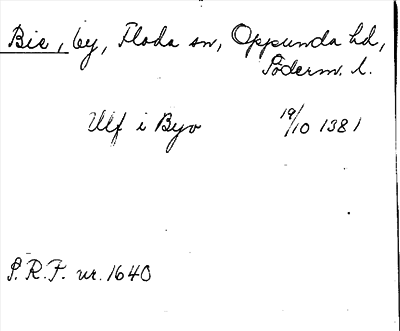 Bie, by, Floda sn, Oppunda hd,
Söderm. l.
Ulf i Byo 19/10 1381
S.R.F. nr. 1640